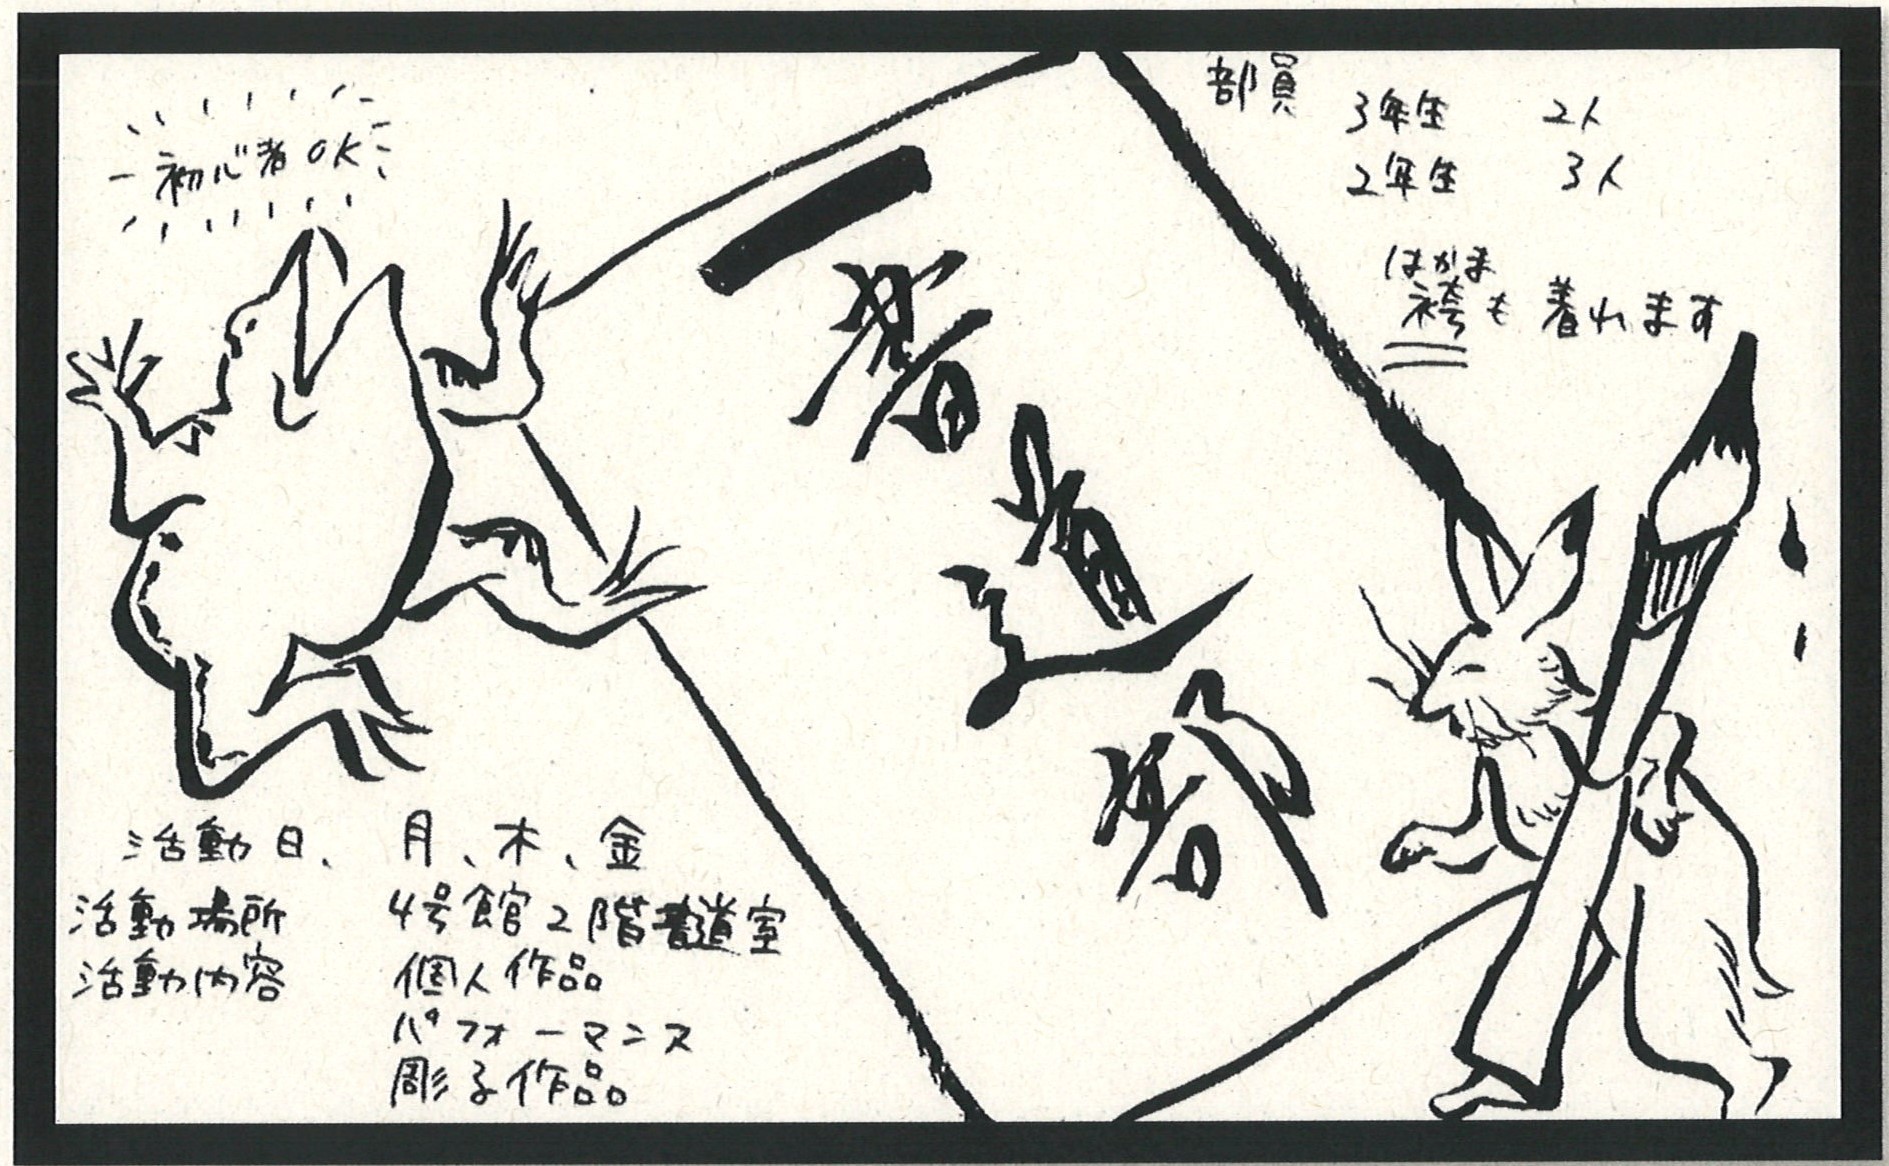 初心者OK
書道部
部員
3年生 2人
2年生 3人
はかま
袴も着れます
活動日、 月、木、金
活動場所 4号館2階書道室
活動内容 個人作品
パフォーマンス
彫る作品